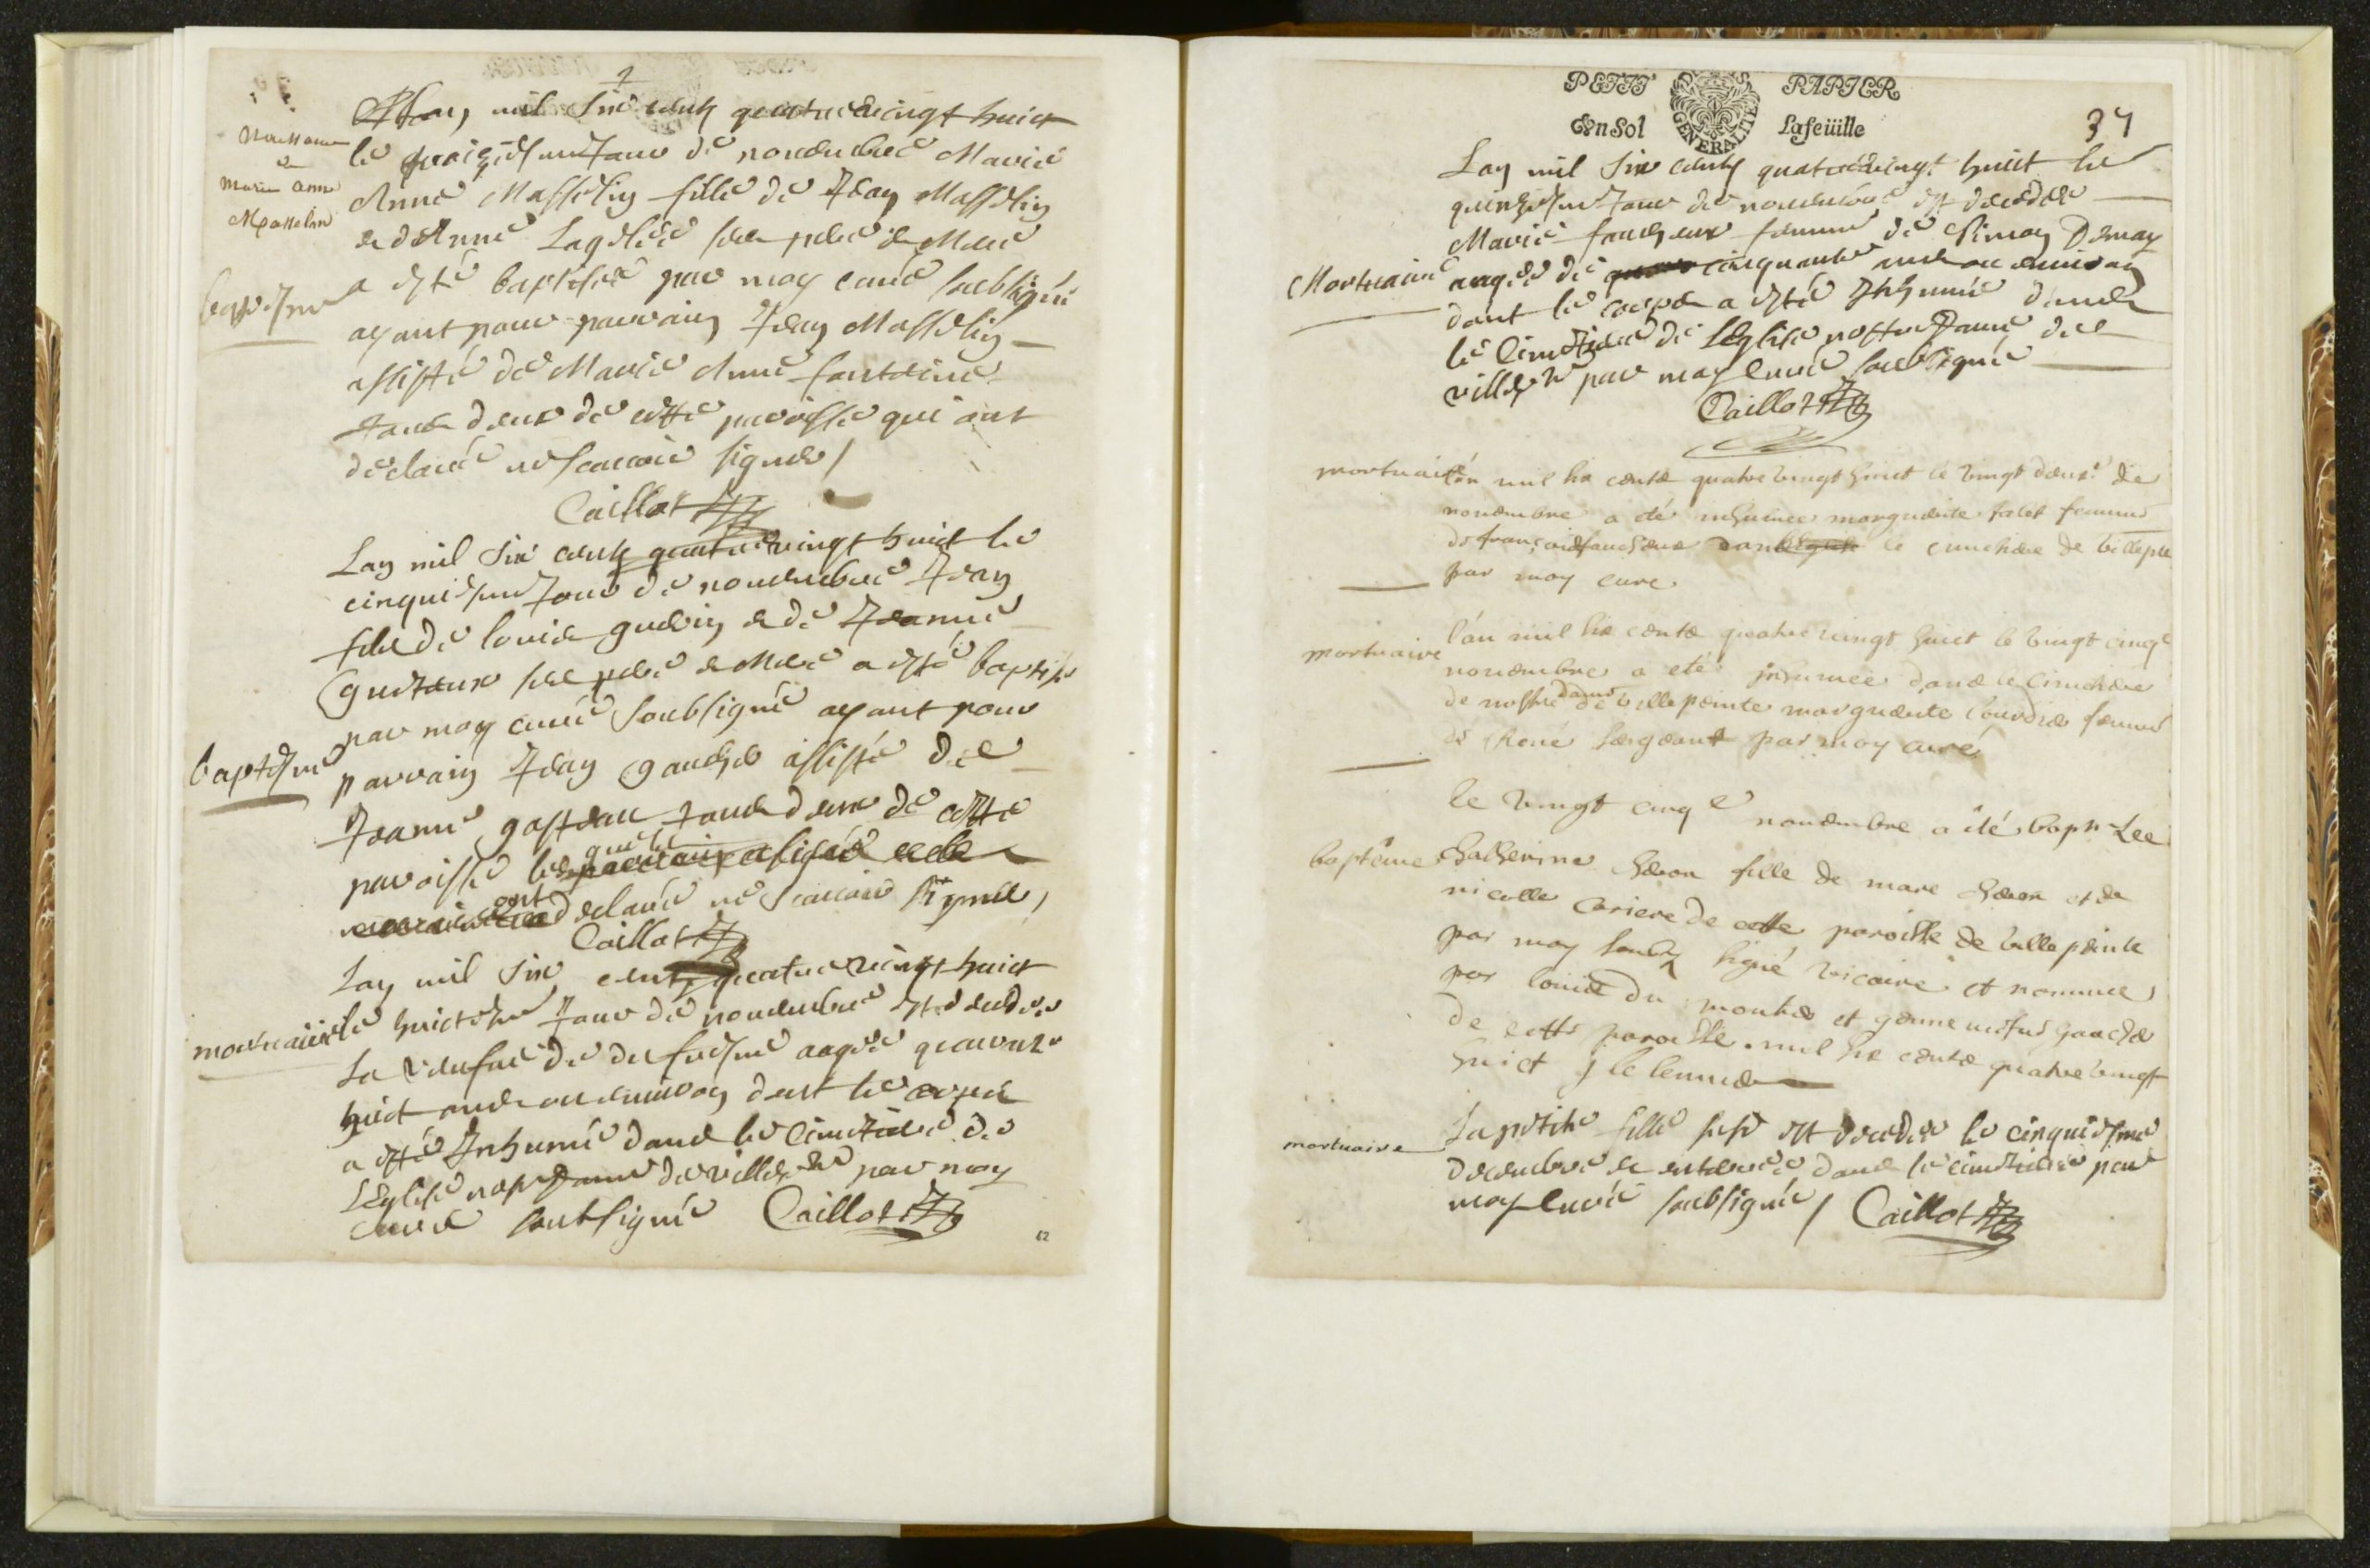 Lan mil six cents quatrevingt huict
le troiziesme Jour de novembre Marie
Naissance
de
Marie Anne
Masselin
Anne Masselin fille de Jean Masselin
et d'Anne ses pere et Mere
baptesme
a esté baptisée par moy curé soubsigné
ayant pour parrain Jean Masselin
assisté de Marie Anne fontaine
tous deux de cette paroisse qui ont
declaré ne scavoir signer /
Caillot
Lan mil six cents quatrevingt huict le
cinquiesme Jour de novembre Jean
fils de louis guerin et de Jeanne
ses pere et Mere a esté baptisé
par moy curé soubsigné ayant pour
baptesme
parrain Jean gaucher assisté de
Jeanne gasteau tous deux de cette
paroisse lesquels
ont declaré ne scavoir signer /
Caillot
Lan mil six cents quatrevingt huict
mortuaire
le huictiesme Jour de novembre est decedée
la veufue de du fresne aagée quarante
huict ans ou environ dont le corps
a esté Inhumé dans le Cimetiere de
LEglise nostre Dame de villepte par moy
Curé soubsigné Caillot
62
PETIT PAPIER
En Sol La feüille
GENERALITE
37
Lan mil six cents quatrevingt huict le
quinziesme Jour de novembre est decedée
Marie faucheur femme de Simon Demay
Mortuaire
aagée de cinquante ans ou environ
dont le corps a esté Inhumé dans
le Cimetiere de LEglise nostre Dame de
villepte par moy Curé soubsigné
Caillot
mortuaire
l'an mil six cents quatre vingt huict le vingt deux.e de
novembre a été inhumée marguerite falet femme
de françois faucheur dans le cimetiere de villepte
par moy curé
mortuaire
l'an mil six cents quatre vingt huict le vingt cinq.e
novembre a eté inhumée dans le cimetiere
de nostre dame de villepeinte marguerite femme
de René sergeant par moy curé
le vingt cinq.e novembre a été baptisee
baptême
Catherine heron fille de marc heron et de
nicolle cariere de cette paroisse de villepeinte
par moy soubs signé vicaire et nommee
par louis du montier et gaucher
de cette paroisse mil six cents quatre vingt
huict
mortuaire
la petite fille est decedée le cinquiesme
decembre et enterrée dans le cimetiere par
moy Curé soubsigné / Caillot